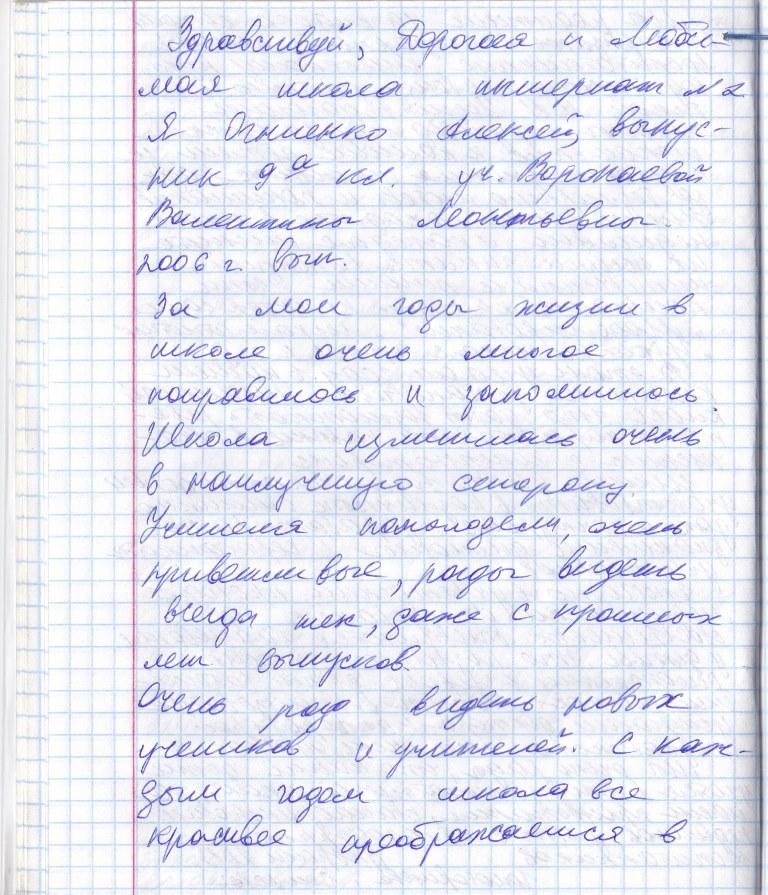 Здравствуй, Дорогая и Люби-
мая школа интернат №2
Я Огниенко Алексей, выпус-
ник 9а кл. уч. Воропаевой
Валентины Леонтьевны.
2006 г. вып.
За мои годы жизни в
школе очень многое
понравилось и запомнилось.
Школа изменилась очень
в наилучшую сторону.
Учителя помолодели, очень
приветливые, рады видеть
всегда нек, даже с прошлых
лет выпусков.
Очень рад видеть новых
учеников и учителей. С каж-
дым годом школа все
красивее преображается в